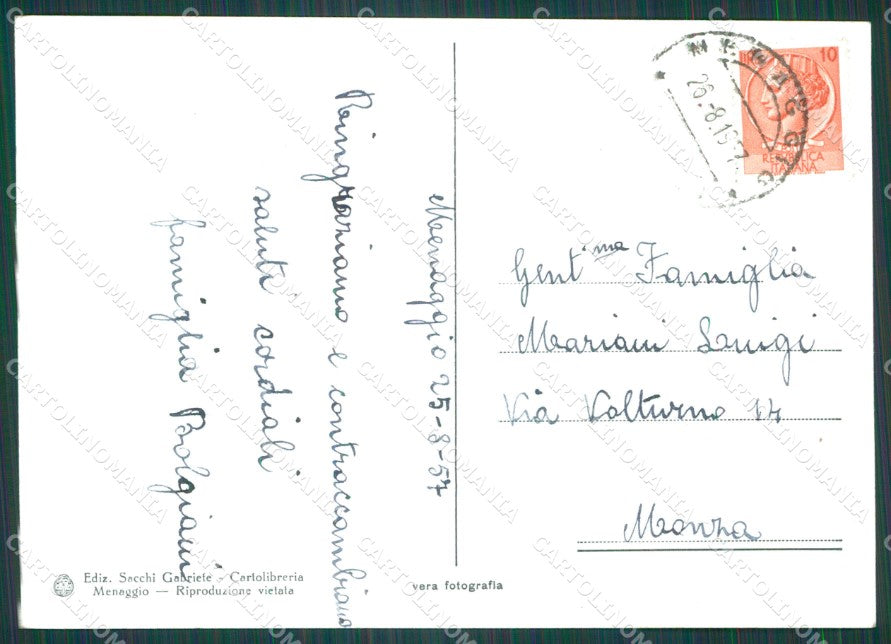 Menaggio 25-8-57
Ringraziamo e contraccambiamo
saluti cordiali
famiglia Bolgiani
MENAGGIO
26.-8.1957
10
REPUBBLICA
ITALIANA
Gent.ma Famiglia
Mariani Luigi
Via Volturno 14
Monza
Ediz. Sacchi Gabriele - Cartolibreria
Menaggio — Riproduzione vietata
vera fotografia
CARTOLINOMANIA